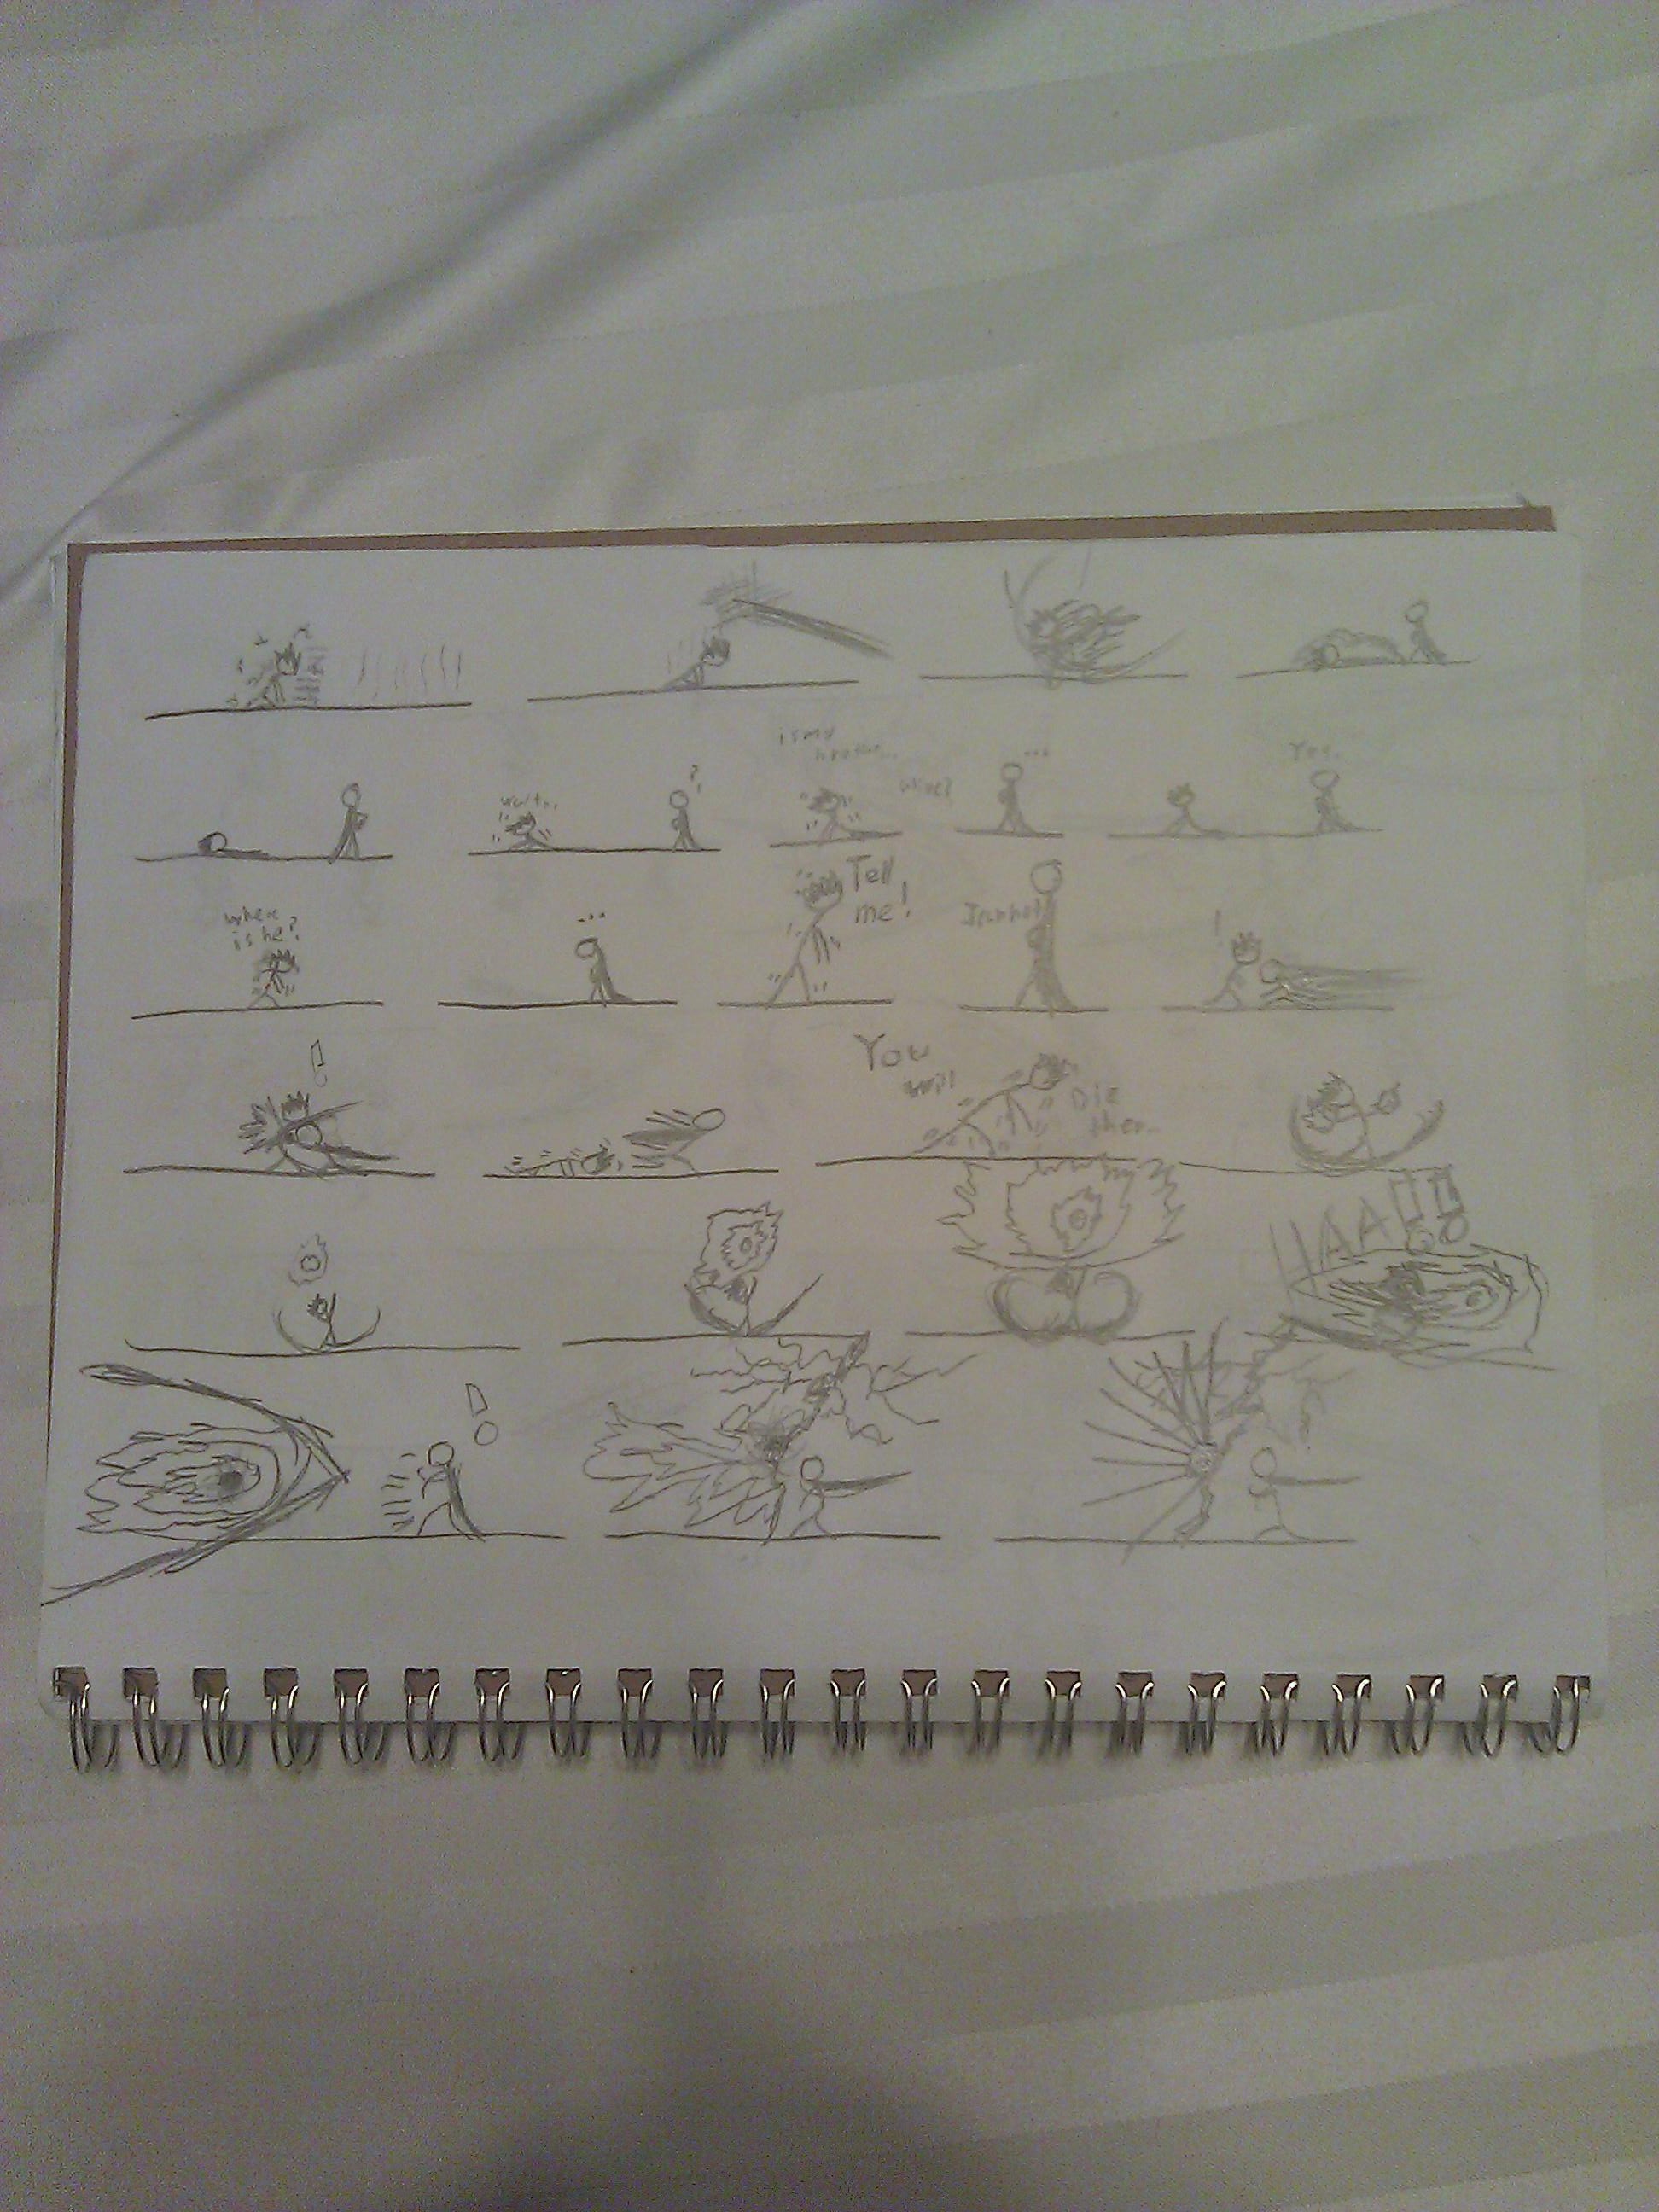 wait..
?
is my
brother...
alive?
...
Yes.
where
is he?
...
Tell
me!
I cannot
!
!
You
will
Die
then...
HAA!!
!